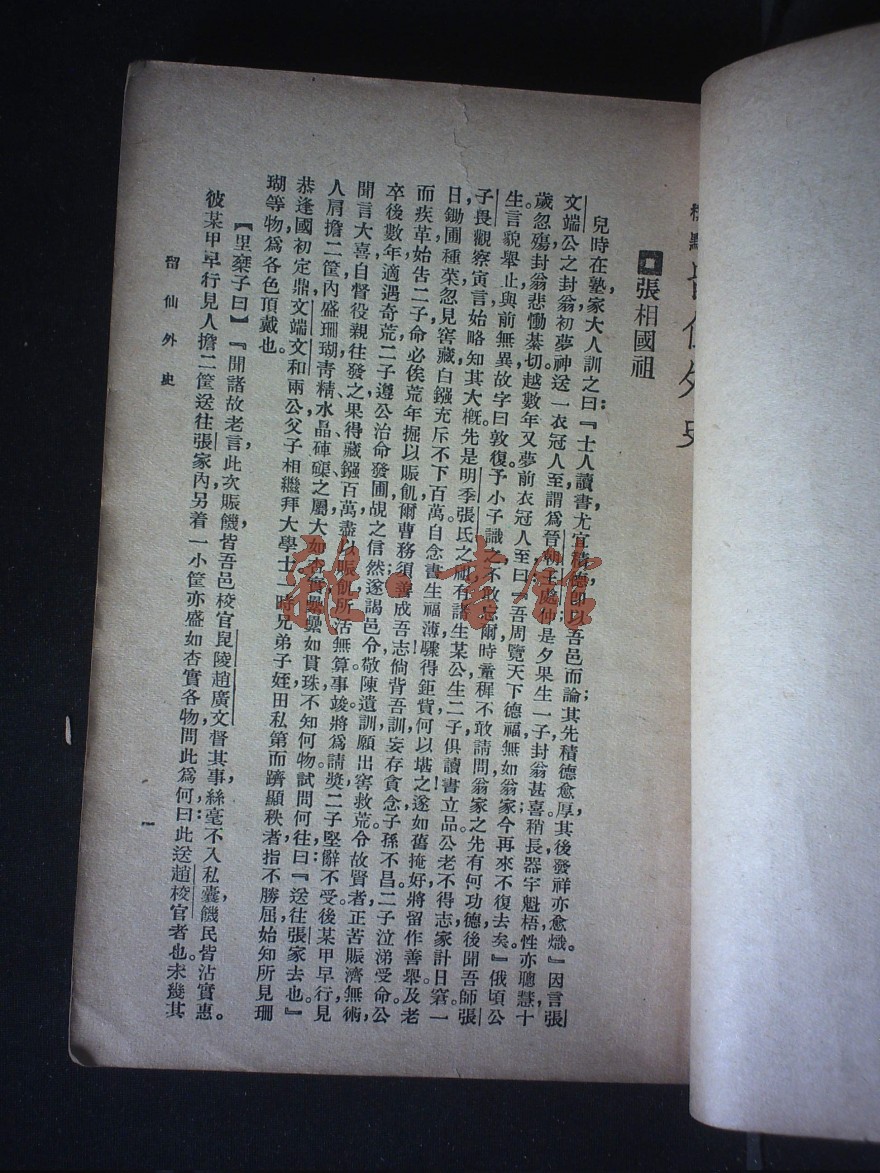 標點留仙外史
張相國祖
兒時在塾,家大人訓之曰:『士人讀書,尤宜積德,卽以吾邑而論;其先積德愈厚,其後發祥亦愈熾。』因言張
文端公之封翁,初夢神送一衣冠人至,謂爲晉朝王處仲,是夕果生一子,封翁甚喜;稍長,器宇魁梧,性亦聰慧,十
歲忽殤。封翁悲慟綦切,越數年,又夢前衣冠人至曰:『吾周覽天下,德福無如翁家,今再來不復去矣。』俄頃公
生,言貌舉止,與前無異,故字曰敦復。予小子識之不敢忘,爾時童穉,不敢請問翁家之先有何功德,後聞吾師張
子畏觀察寅言,始略知其大槪。先是明季張氏之祖有諸生某公,生二子,俱讀書立品。公老不得志,家計日窘。一
日鋤圃種菜,忽見窖藏,白鏹充斥,不下百萬。自念書生福薄,驟得鉅貲,何以堪之!遂如舊掩好,將留作善舉。及老
而疾革,始告二子,命必俟荒年掘以賑飢,爾曹務須善成吾志;倘背吾訓,妄存貪念,子孫不昌。二子泣涕受命。公
卒後數年,適遇奇荒,二子遵公治命,發圃覘之,信然。遂謁邑令,敬陳遺訓,願出窖救荒。令故賢者,正苦賑濟無術,
聞言大喜,自督役親往發之,果得藏鏹百萬,盡以賑飢,所活無算。事竣,將爲請奬,二子堅辭不受。後某甲早行,見
人肩擔二筐,內盛珊瑚、青精、水晶、硨磲之屬,大如杏實,纍纍如貫珠,不知何物,試問何往?曰:『送往張家去也。』
恭逢國初定鼎,文端、文和兩公父子相繼拜大學士,一時兄弟子姪由私第而躋顯秩者,指不勝屈,始知所見珊
瑚等物,爲各色頂戴也。
【里乘子曰】『聞諸故老言,此次賑饑,皆吾邑校官毘陵趙廣文督其事,絲毫不入私囊,饑民皆沾實惠。
彼某甲早行,見人擔二筐送往張家,內另着一小筐,亦盛如杏實各物,問此爲何?曰:此送趙校官者也。未幾其
留仙外史
一
雜·書館